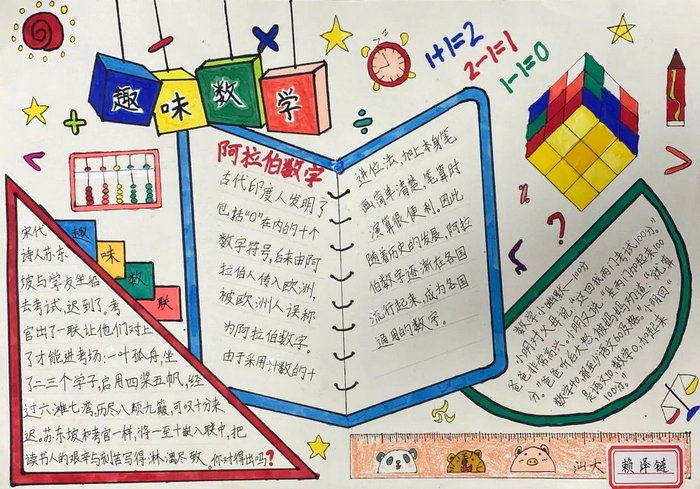 趣味数学
1+1=2
2-1=1
1-1=0
阿拉伯数字
古代印度人发明了
包括“0”在内的十个
数字符号,后来由阿
拉伯人传入欧洲,
被欧洲人误称
为阿拉伯数字。
由于采用计数的十
进位法,加上本身笔
画简单清楚,笔算时
演算很便利。因此
随着历史的发展,阿拉
伯数字逐渐在各国
流行起来,成为各国
通用的数字。
趣味数联
宋代
诗人苏东
坡与学友坐船
去考试,迟到了。考
官出了一联让他们对上
了才能进考场:一叶孤舟,坐
了二三个学子,启用四桨五帆,经
过六滩七湾,历尽八颠九簸,可叹十分来
迟。苏东坡和考官一样,将一至十嵌入联中,把
读书人的艰辛与刻苦写得淋漓尽致。你对得出吗?
数学小幽默—100分
小明对父母说:“这回我两门考试100分。”
爸爸非常高兴。小明又说:“是两门加起来100
分。”爸爸听后大怒,被妈妈劝道:“就算
数学40,那还有语文60及格。”小明回“
是语文10,数学0,加起来
100分。”
汕大
赖泽链